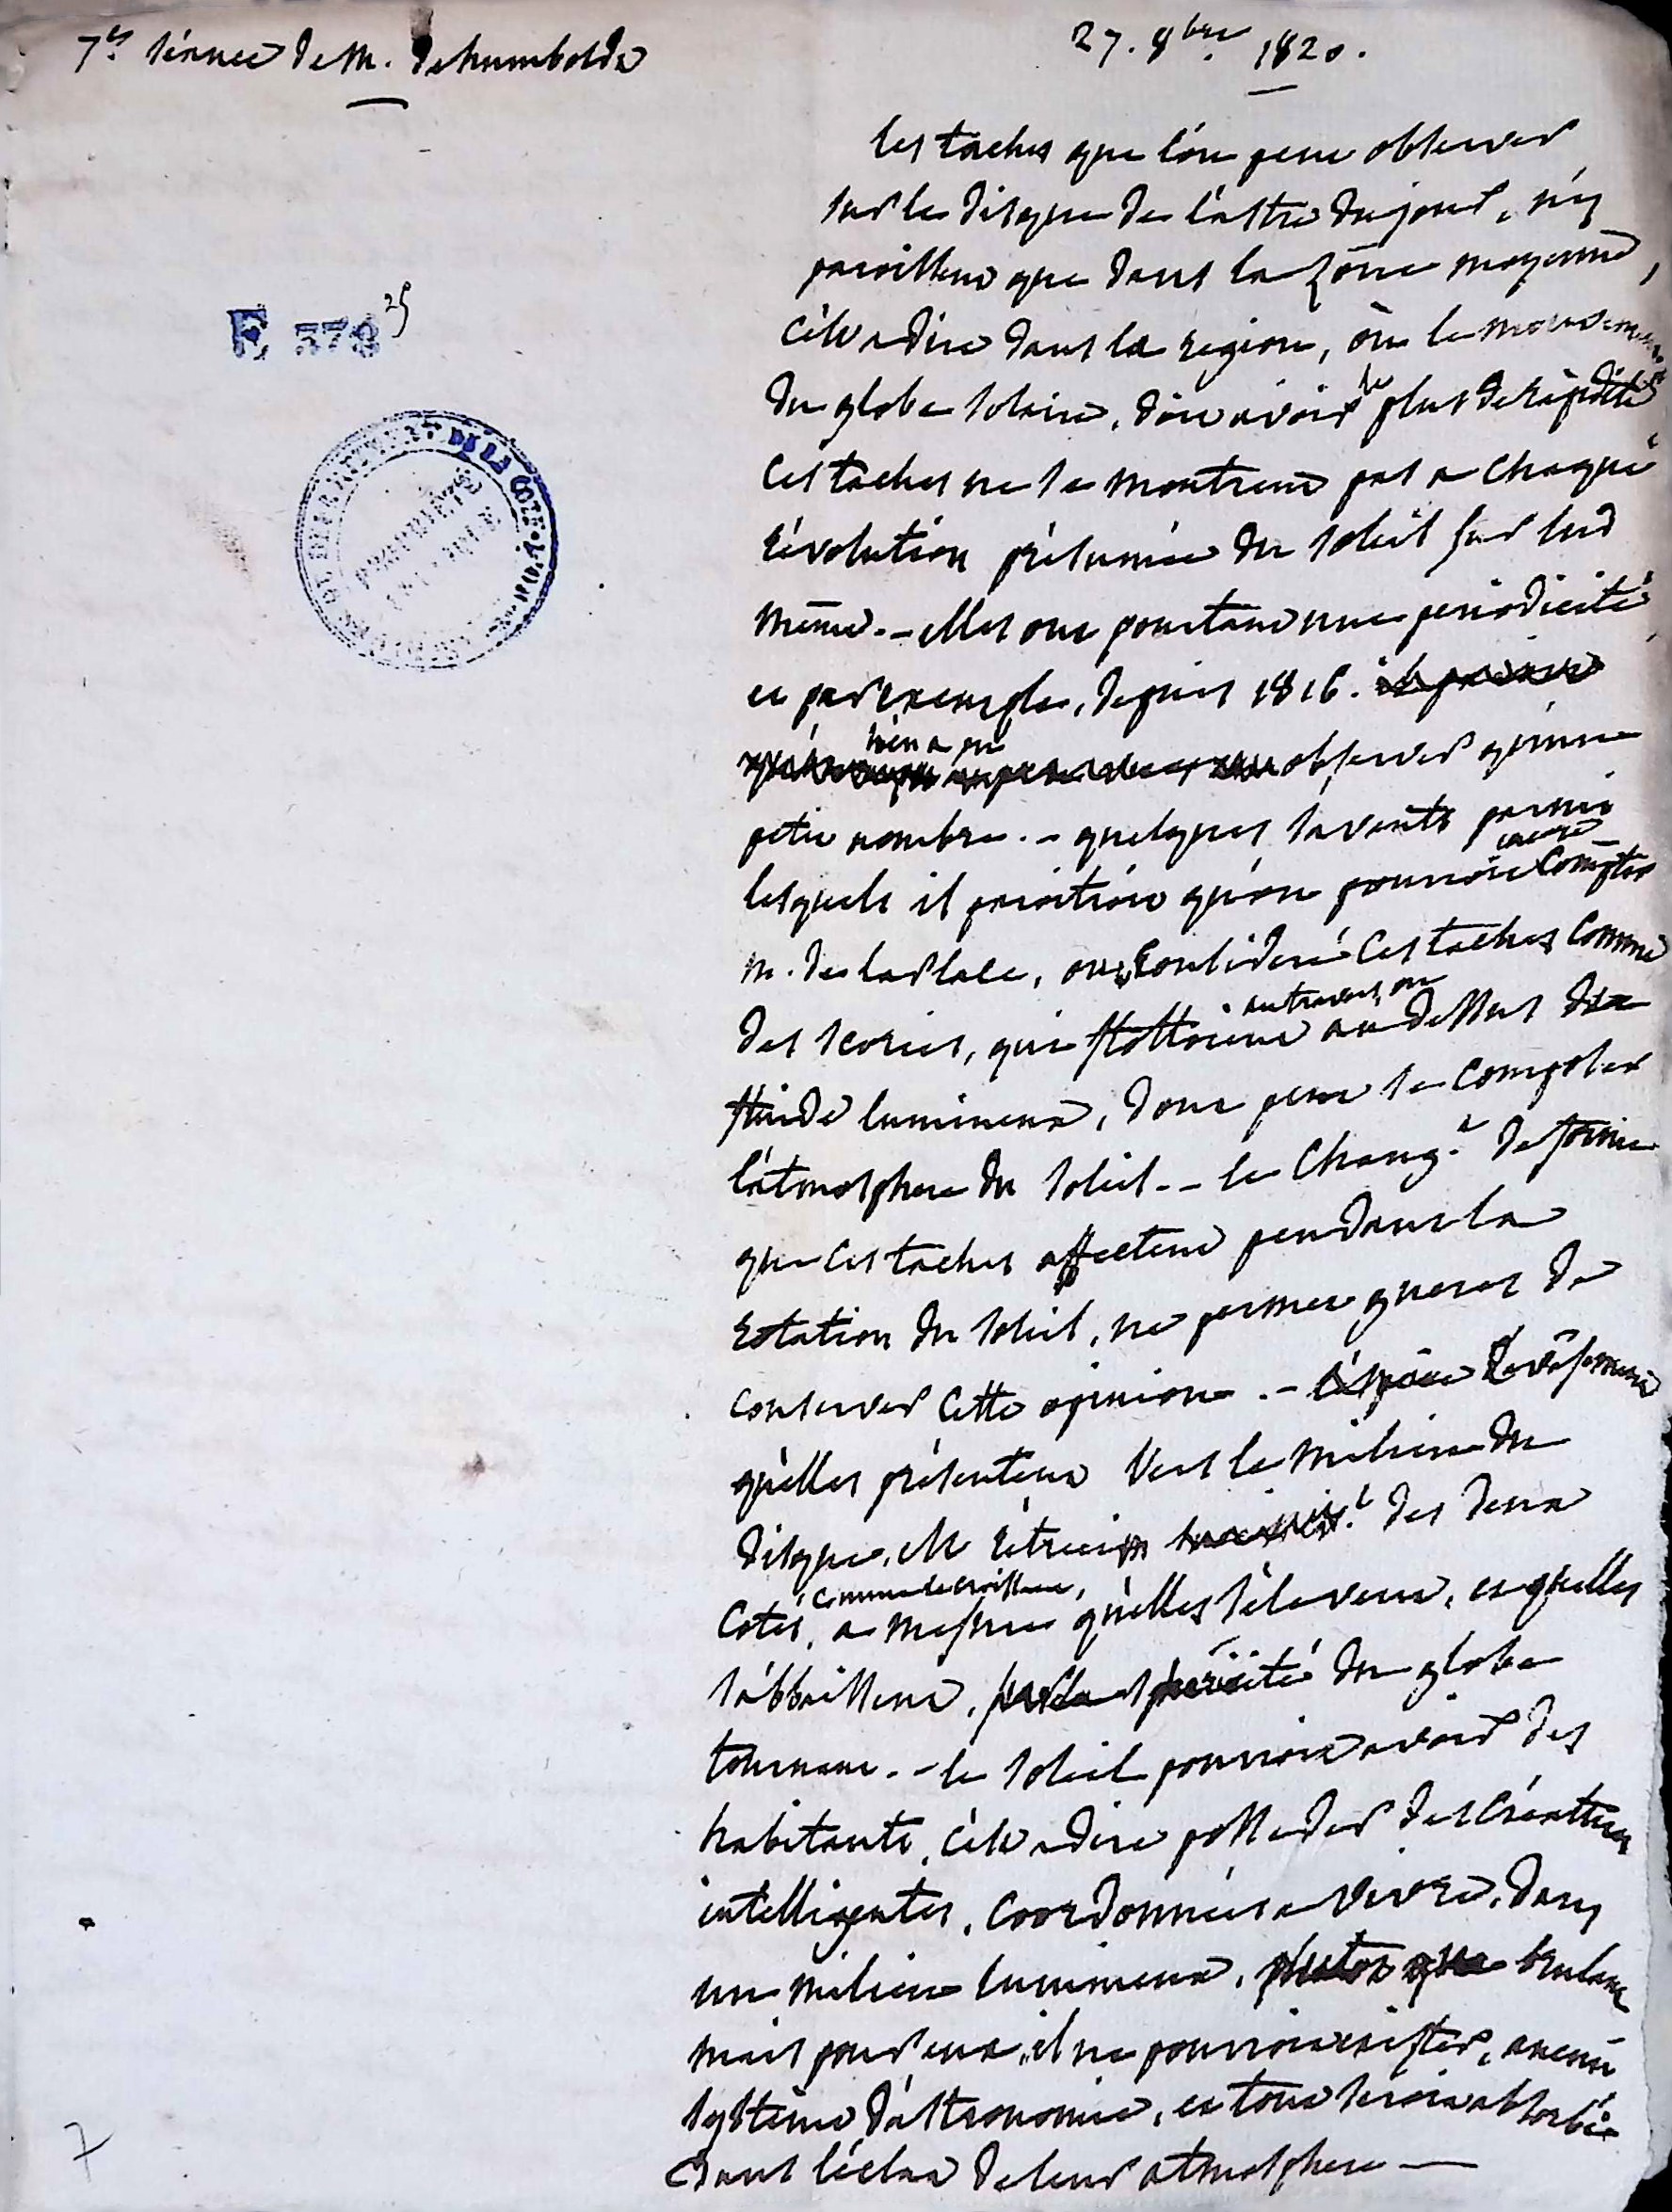 7.e séance de M. de humboldt
27. 8bre. 1820.
E 378 25
DE LA COTE-D'OR
PROPRIÉTÉ
PUBLIQUE
les taches que l'on peut observer
sur le disque de l'astre du jour, n'y
paroissent que dans la zône moyenne,
c'est a dire dans la région, où le mouvement
du globe solaire, doit avoir le plus de rapidité
Ces taches ne se montrent pas a chaque
révolution présumée du soleil sur lui
même. - elles ont pourtant une periodicité,
et par exemple, depuis 1816.
l'on a pu observer qu'une
petit nombre. - quelques savants parmi
lesquels il paroitroit qu'on pourroit encore compter
m. de la place, ont considéré ces taches comme
des scories, qui flottoient au travers, ou au dessus du
fluide lumineux, dont peut se composer
l'atmosphere du soleil. - le chang.t de forme
que ces taches affectent pendant la
rotation du soleil, ne permet gueres de
conserver cette opinion. -
qu'elles présentent vers le milieu du
disque, se rétrecit des deux
cotés, comme le croissant, a mesure qu'elles s'élevent, et qu'elles
s'abbaissent, sur la sphéricité du globe
tournant. - le soleil pourroit avoir des
habitants, c'est a dire posseder des créatures
intelligentes, coordonnées a vivre, dans
un milieu lumineux, plutot que brulant
mais pour eux, il ne pourroit exister, aucun
systême d'astronomie, et tout seroit absorbé
dans l'éclat de leur atmosphere —
7